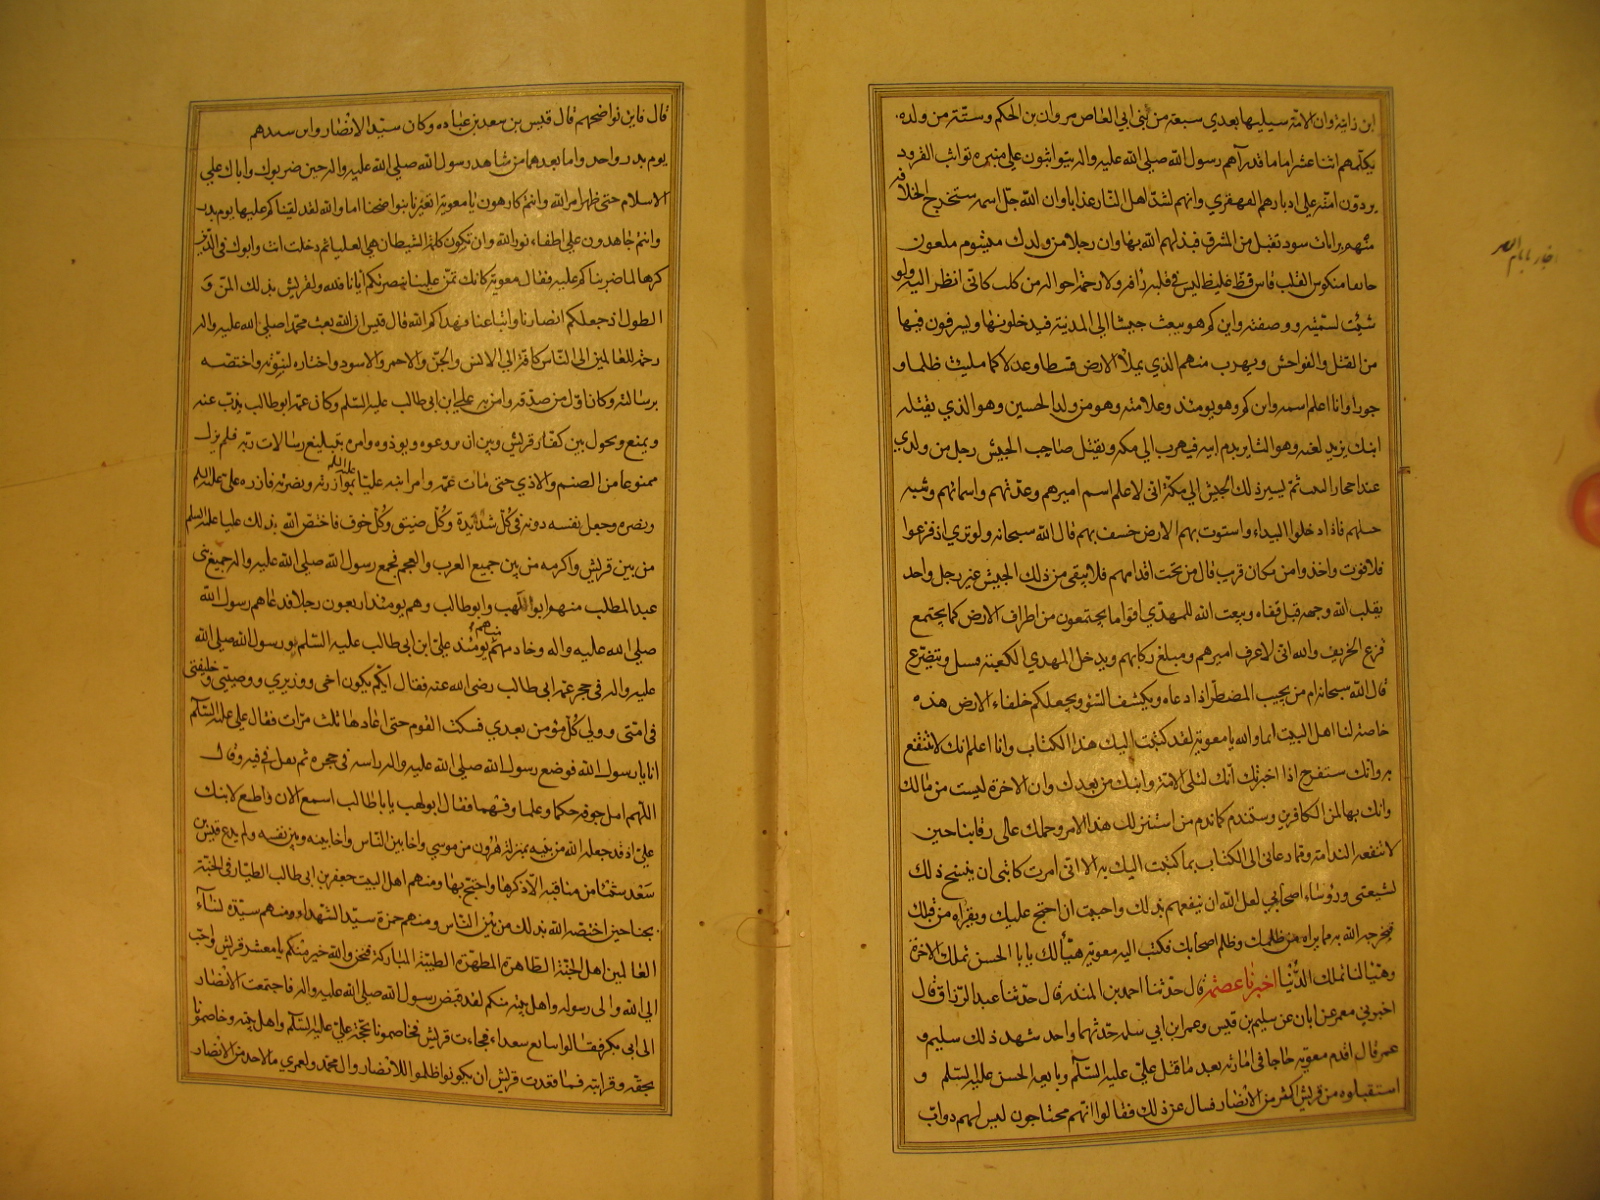 ابن زانية وان الامة سيليها بعدي سبعة من بني ابي العاص مروان بن الحكم وستة من ولده
يكلمهم اثنا عشر اماما قد رآهم رسول الله صلى الله عليه واله يتواثبون على منبره تواثب القرود
يردون امته على ادبارهم القهقري وانهم لشد اهل النار عذابا وان الله جل اسمه ستخرج الخلافة
منهم برايات سود تقبل من المشرق فيذلهم الله بها وان رجلا من ولدك ميشوم ملعون
منكوس القلب فاس فظ غليظ ليس في قلبه رافه ولا رحمة احواله من كلب كاني انظر اليه ولو
شيت لسميته ووصفته وابن كم هو يبعث جيشا الى المدينة فيدخلونها ويسرفون فيها
من القتل والفواحش ويهرب منهم الذي يملأ الارض قسطا وعدلا كما مليت ظلما و
جورا وانا اعلم اسمه وابن كم وهو يومئذ وعلامته وهو من ولد الحسين وهو الذي يقتله
ابنك يزيد لعنه وهو الثاير بدم ابيه فيهرب الى مكه ويقتل صاحب الجيش رجل من ولدي
عند احجار ثم يسير ذلك الجيش الى مكة اني لاعلم اسم اميرهم وعدتهم واسمائهم وشيه
حيلهم فاذا دخلوا البيداء واستوت بهم الارض خسف بهم قال الله سبحانه ولو ترى اذ فزعوا
فلا فوت واخذوا من مكان قريب قال من تحت اقدامهم فلا يبقى من ذلك الجيش غير رجل واحد
يقلب الله وجهه قبل قفاه ويبعث الله للمهدي اقواما يجتمعون من اطراف الارض كما يجتمع
قزع الخريف والله اني لاعرف اميرهم ومبلغ ركابهم ويدخل المهدي الكعبة ويتضرع
قال الله سبحانه ام من يجيب المضطر اذا دعاه ويكشف السؤ ويجعلكم خلفاء الارض هذه
خاصة لنا اهل البيت اما والله يا معوية لقد كتبت اليك هذا الكتاب وانا اعلم انك لا تنتفع
به وانك ستفرح اذا اخبرتك انك لتلى الامة وابنك من بعدك وان الاخرة ليست من مالك
وانك بها لمن الكافرين وستندم كما ندم من استن لك هذا الامر وحملك على رقابنا حين
لا تنفعه الندامة وقما دعاني الى الكتاب بما كتبت اليك به الا اني امرت كاتبي ان ينسخ ذلك
لشيعتي ورؤساء اصحابي لعل الله ان ينفعهم بذلك واحببت ان احتج عليك ويقرأه من قبلك
فيخرجه الله به مما يراه من ظلمك وظلم اصحابك فكتب اليه معوية هنيأ لك يابا الحسن تملك الاخرة
وهنيا لنا نملك الدنيا اخبرنا عصمة قال حدثنا احمد بن المنذر قال حدثنا عبد الرزاق قال
اخبرني معمر عن ابان عن سليم بن قيس وعمر بن ابي سلمه حدثهما واحد شهد ذلك سليم و
عمر قال اقدم معوية حاجا في امارته بعد ما قتل علي عليه السلم وبايعه الحسن عليه السلم و
استقبلوه من قريش اكثر من الانصار فسال عن ذلك فقالوا انهم محتاجون ليس لهم دواب
قال فاين نواضحهم قال قيس بن سعد بن عباده وكان سيد الانصار وابن سيدهم
يوم بدر واحد واما بعدهما من مشاهد رسول الله صلى الله عليه واله حين ضربوك واباك على
الاسلام حتى ظهر امر الله وانتم كارهون يا معوية اتعيرنا بنواضحنا اما والله لقد لقيناكم عليها يوم بدر
وانتم جاهدون على اطفاء نور الله وان تكون كلمة الشيطان هي العليا ثم دخلت انت وابوك في الدين
كرها لما ضربناكم عليه فقال معوية كانك تمن علينا بنصرتكم ايانا فلله ولقريش بذلك المن و
الطول اذ جعلكم انصارنا واتباعنا فهداكم الله قال قيس ان الله بعث محمدا صلى الله عليه واله
رحمة للعالمين الى الناس كافة الى الانس والجن والاحمر والاسود واختاره لنبوته واختصه
برسالته وكان اول من صدقه وامن به علي بن ابي طالب عليه السلم وكان عمه ابوطالب يذب عنه
ويمنع ويحول بين كفار قريش وبين ان يروعوه ويوذوه وامره بتبليغ رسالات ربه فلم يزل
ممنوعا من الضيم والاذي حتى مات عمه وامر ابنه عليا عليه السلم بموازرته ونصرته فازره علي عليه السلم
ونصره وجعل نفسه دونه في كل شديدة وكل ضيق وكل خوف فاختص الله بذلك عليا عليه السلم
من بين قريش واكرمه من بين جميع العرب والعجم فجمع رسول الله صلى الله عليه واله جميع بني
عبد المطلب منهم ابو اللهب وابوطالب وهم يومئذ اربعون رجلا فدعاهم رسول الله
صلى الله عليه واله وخادمهم يومئذ علي ابن ابي طالب عليه السلم ورسول الله صلى الله
عليه واله في حجر عمه ابي طالب رضى الله عنه فقال ايكم يكون اخي ووزيري ووصيي وخليفتي
في امتي وولي كل مؤمن بعدي فسكت القوم حتى اعادها ثلث مرات فقال علي عليه السلم
انا يا رسول الله فوضع رسول الله صلى الله عليه واله راسه في حجره ثم تفل في فيه وقال
اللهم امل جوفه حكما وعلما وفهما فقال ابولهب يا باطالب اسمع الان واطع لابنك
علي اذ قد جعله الله من نبيه بمنزلة هرون من موسى واخا بين الناس واخا بينه وبين نفسه ولم يدع قيس بن
سعد شيئا من مناقبه الا ذكرها واحتج بها ومنهم اهل البيت جعفر بن ابي طالب الطيار في الجنة
بجناحين اختصه الله بذلك من بين الناس ومنهم حمزة سيد الشهداء ومنهم سيدة نساء
العالمين اهل الجنة الطاهرة المطهرة الطيبة المباركة فنحن والله خير منكم يا معشر قريش واحب
الى الله والى رسوله واهل بيته منكم لقد قبض رسول الله صلى الله عليه واله فاجتمعت الانصار
الى ابي بكر فقالوا نبايع سعدا فجاءت قريش فخاصمونا بحجة علي عليه السلم واهل بيته وخاصمونا
بحقه وقرابته فما فقدت قريش ان يكونوا ظلموا للانصار وال محمد ولعمري ما لاحد من الانصار